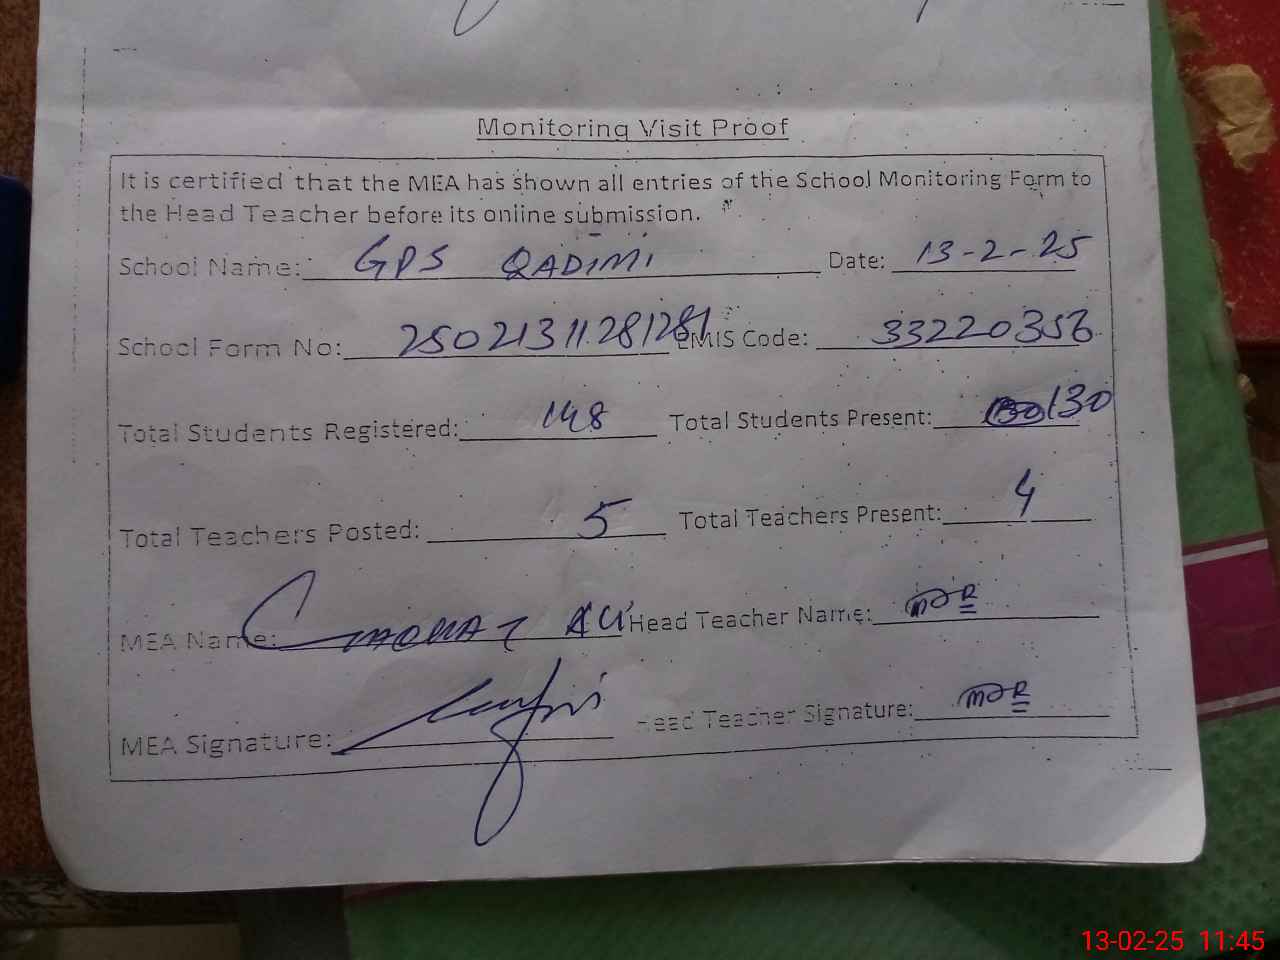 Monitoring Visit Proof
It is certified that the MEA has shown all entries of the School Monitoring Form to
the Head Teacher before its online submission.
School Name: GPS QADIMI Date: 13-2-25
School Form No: 25021311281281 EMIS Code: 33220356
Total Students Registered: 148 Total Students Present: 130
Total Teachers Posted: 5 Total Teachers Present: 4
MEA Name: Head Teacher Name:
MEA Signature: Head Teacher Signature:
13-02-25 11:45